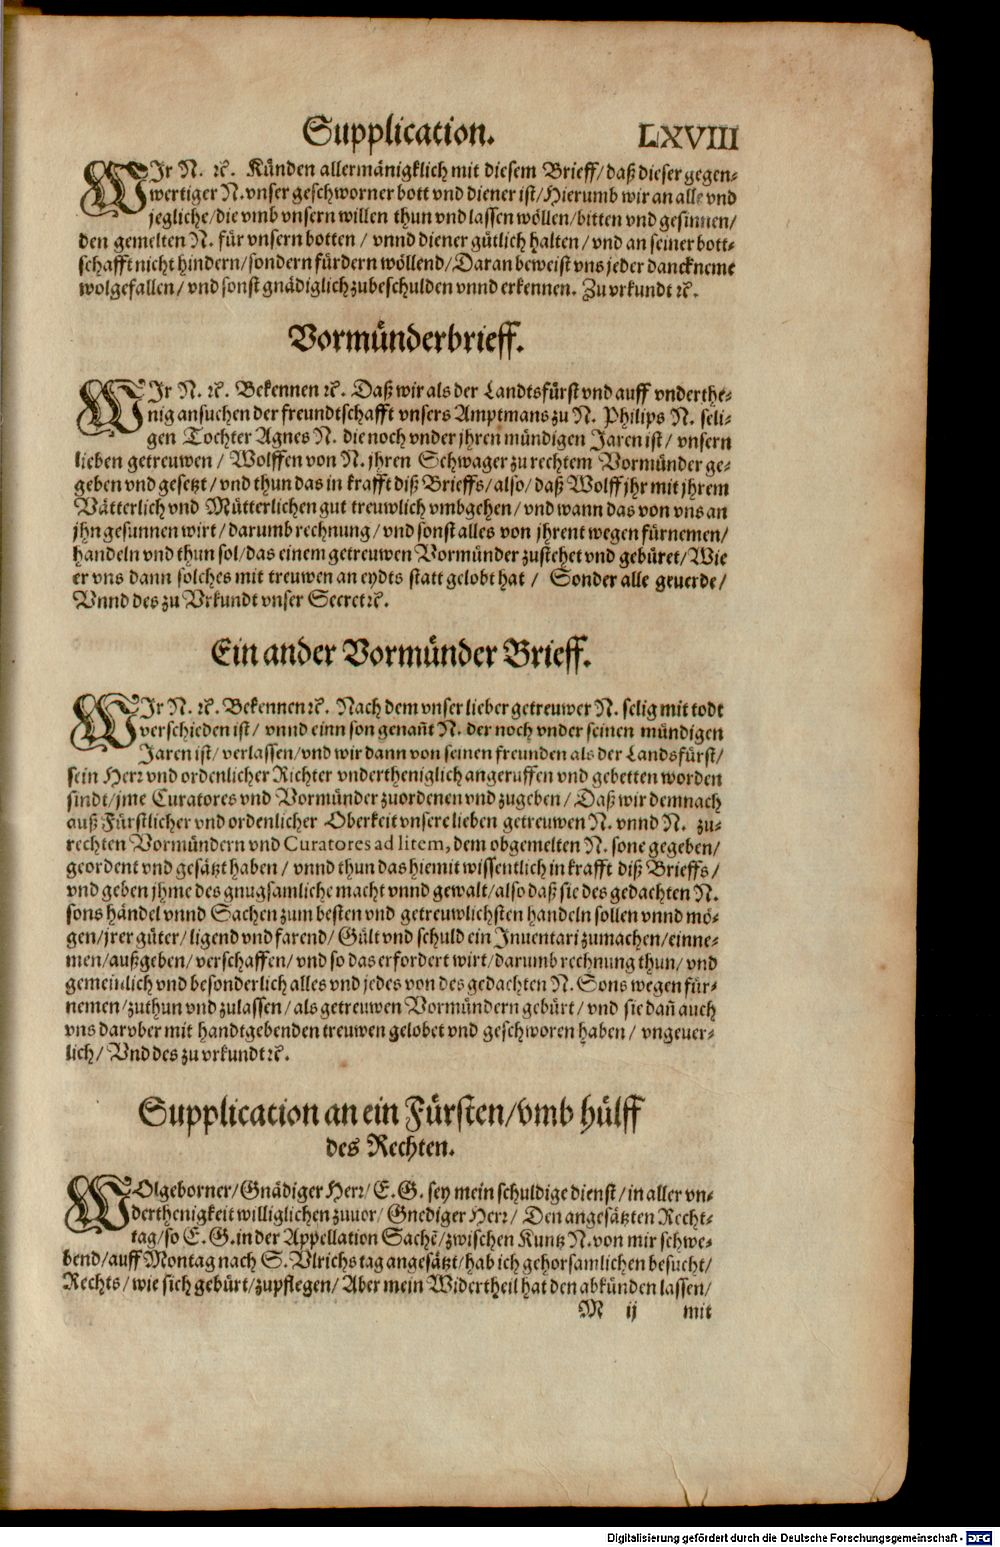 Supplication. LXVIII
WIr N. ꝛc. Künden allermänigklich mit diesem Brieff/ daß dieser gegen-
wertiger N. vnser geschworner bott vnd diener ist/ Hierumb wir an alle vnd
jegliche/ die vmb vnsern willen thun vnd lassen wöllen/ bitten vnd gesinnen/
den gemelten N. für vnsern botten / vnnd diener gütlich halten/ vnd an seiner bott-
schafft nicht hindern/ sondern fürdern wöllend/ Daran beweist vns jeder danckneme
wolgefallen/ vnd sonst gnädiglich zubeschulden vnnd erkennen. Zu vrkundt ꝛc.
Vormünderbrieff.
WIr N. ꝛc. Bekennen ꝛc. Daß wir als der Landtsfürst vnd auff vnderthe-
nig ansuchen der freundtschafft vnsers Amptmans zu N. Philips N. seli-
gen Tochter Agnes N. die noch vnder jhren mündigen Jaren ist/ vnsern
lieben getreuwen / Wolffen von N. jhren Schwager zu rechtem Vormünder ge-
geben vnd gesetzt/ vnd thun das in krafft diß Brieffs/ also/ daß Wolff jhr mit jhrem
Vätterlich vnd Mütterlichen gut treuwlich vmbgehen/ vnd wann das von vns an
jhn gesunnen wirt/ darumb rechnung/ vnd sonst alles von jhrent wegen fürnemen/
handeln vnd thun sol/ das einem getreuwen Vormünder zustehet vnd gebüret/ Wie
er vns dann solches mit treuwen an eydts statt gelobt hat / Sonder alle geuerde/
Vnnd des zu Vrkundt vnser Secret ꝛc.
Ein ander Vormünder Brieff.
WIr N. ꝛc. Bekennen ꝛc. Nach dem vnser lieber getreuwer N. selig mit todt
verschieden ist/ vnnd einn son genañt N. der noch vnder seinen mündigen
Jaren ist/ verlassen/ vnd wir dann von seinen freunden als der Landsfürst/
sein Herr vnd ordenlicher Richter vndertheniglich angeruffen vnd gebetten worden
sindt/ jme Curatores vnd Vormünder zuordenen vnd zugeben/ Daß wir demnach
auß Fürstlicher vnd ordenlicher Oberkeit vnsere lieben getreuwen N. vnnd N. zu-
rechten Vormündern vnd Curatores ad litem, dem obgemelten N. sone gegeben/
geordent vnd gesätzt haben / vnnd thun das hiemit wissentlich in krafft diß Brieffs/
vnd geben jhme des gnugsamliche macht vnnd gewalt/ also daß sie des gedachten N.
sons händel vnnd Sachen zum besten vnd getreuwlichsten handeln sollen vnnd mö-
gen/ jrer güter/ ligend vnd farend/ Gült vnd schuld ein Inuentari zumachen/ einne-
men/ außgeben/ verschaffen/ vnd so das erfordert wirt/ darumb rechnung thun/ vnd
gemeinlich vnd besonderlich alles vnd jedes von des gedachten N. Sons wegen für-
nemen/ zuthun vnd zulassen/ als getreuwen Vormündern gebürt/ vnd sie dañ auch
vns darober mit handtgebenden treuwen gelobet vnd geschworen haben/ vngeuer-
lich/ Vnd des zu vrkundt ꝛc.
Supplication an ein Fürsten/ vmb hülff
des Rechten.
WOlgeborner/ Gnädiger Herr/ E. G. sey mein schuldige dienst/ in aller vn-
derthenigkeit williglichen zuuor/ Gnediger Herr/ Den angesätzten Recht-
tag/ so E. G. in der Appellation Sachẽ/ zwischen Kuntz N. von mir schwe-
bend/ auff Montag nach S. Vlrichs tag angesätzt/ hab ich gehorsamlichen besucht/
Rechts/ wie sich gebürt/ zupflegen/ Aber mein Widertheil hat den abkünden lassen/
M ij mit
Digitalisierung gefördert durch die Deutsche Forschungsgemeinschaft - DFG